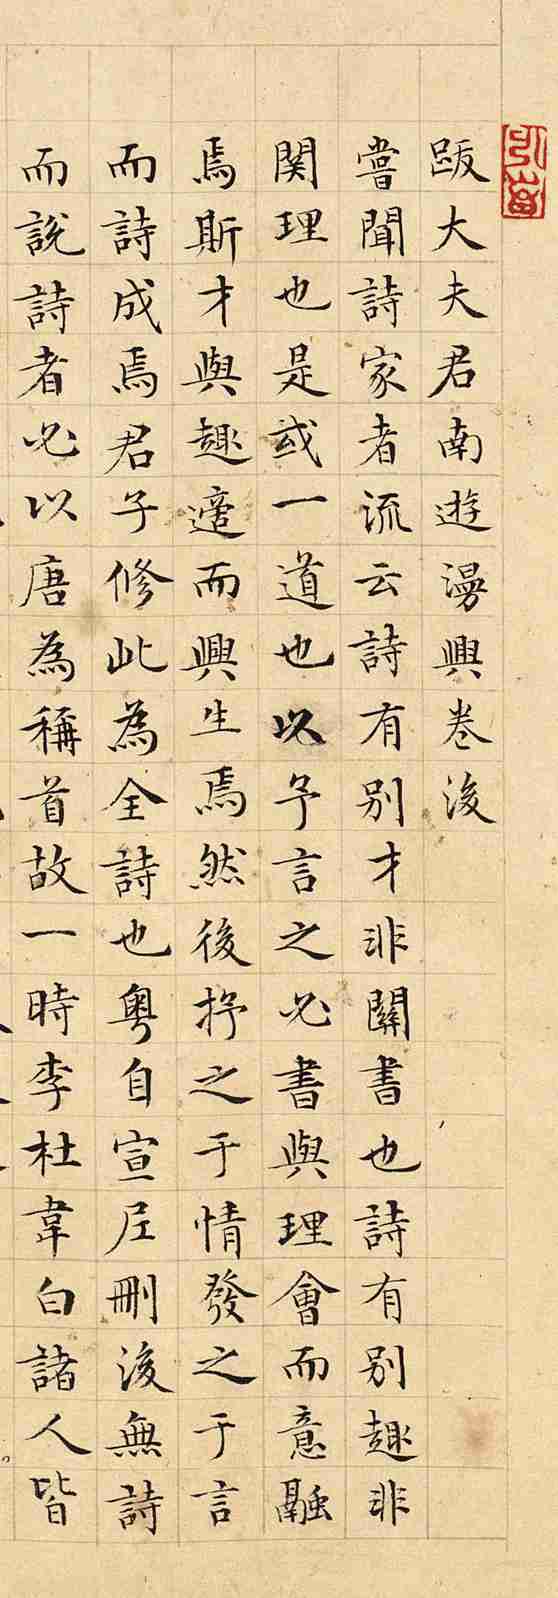 跋大夫君南遊漫興卷後
嘗聞詩家者流云詩有别才非關書也詩有别趣非
関理也是或一道也以予言之必書與理會而意融
焉斯才與趣適而興生焉然後抒之于情發之于言
而詩成焉君子修此為全詩也粤自宣尼刪後無詩
而說詩者必以唐為稱首故一時李杜韋白諸人皆